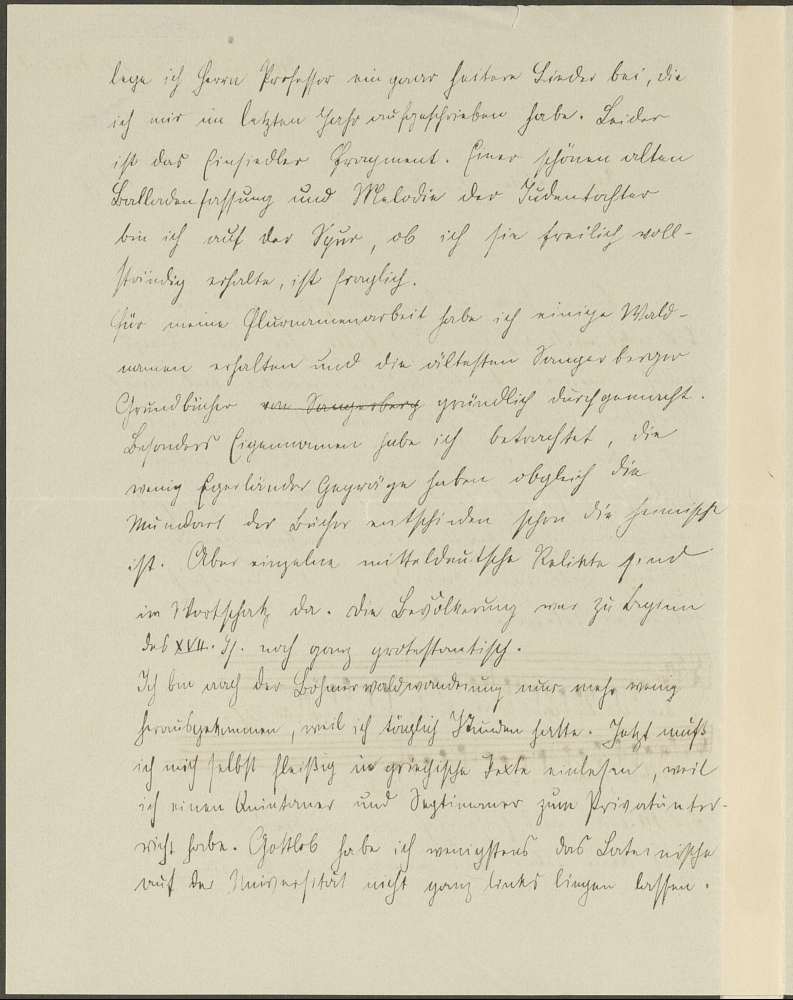 lege ich Herrn Professor ein paar heitere Lieder bei, die
ich mir im letzten Jahr aufgeschrieben habe. Leider
ist das Einsiedler Fragment. Einer schönen alten
Balladenfassung und Melodie der Judentochter
bin ich auf der Spur, ob ich sie freilich voll-
ständig erhalte, ist fraglich.
Für meine Flurnamenarbeit habe ich einige Wald-
namen erhalten und die ältesten Sangerberger
Grundbücher von Sangerberg gründlich durchgemacht.
Besonders Eigennamen habe ich betrachtet, die
wenig Egerländer Gepräge haben obgleich die
Mundart der Bücher entschieden schon die heimische
ist. Aber einzelne mitteldeutsche Relikte sind
im Wortschatz da. Die Bevölkerung war zu Beginn
des XVII. Jh. noch ganz protestantisch.
Ich bin nach der Böhmerwaldwanderung nur mehr wenig
herausgekommen, weil ich täglich Stunden hatte. Jetzt muß
ich mich selbst fleißig in griechische Texte einlesen, weil
ich einen Quintaner und Septimaner zum Privatunter-
richt habe. Gottlob habe ich wenigstens das Lateinische
auf der Universität nicht ganz links liegen lassen.